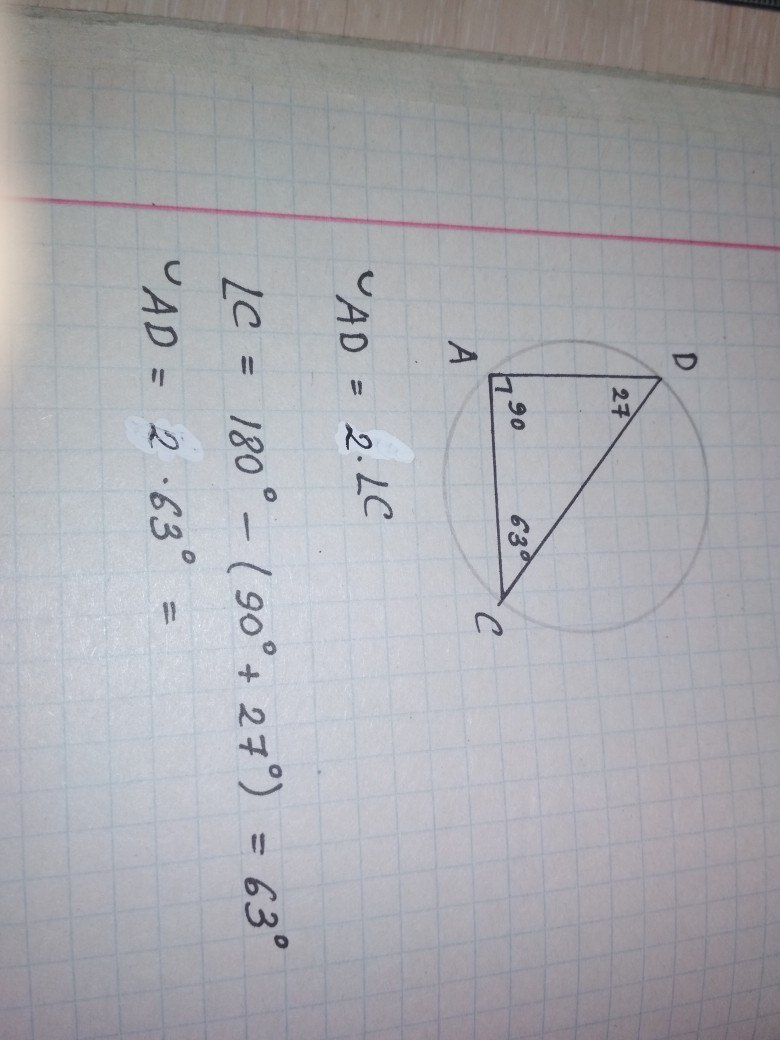 D
27
A
90
63°
C
◡AD = 2·∠C
∠C = 180° − (90° + 27°) = 63°
◡AD = 2·63° =